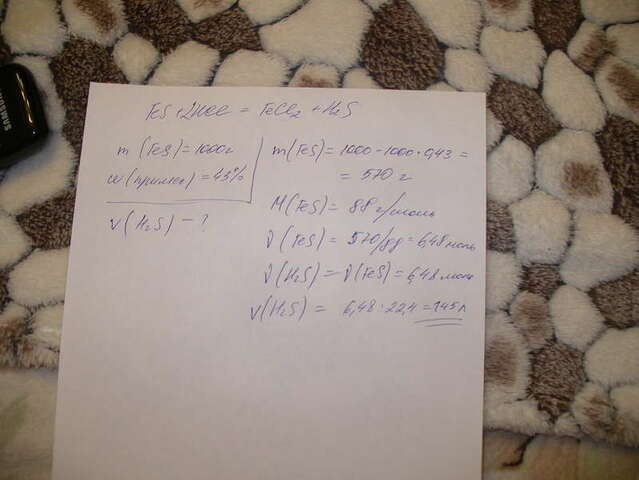 FeS + 2HCl = FeCl₂ + H₂S
m (FeS) = 1000 г
w (примес) = 43%
V (H₂S) - ?
m (FeS) = 1000 - 1000 · 0,43 =
= 570 г
M (FeS) = 88 г/моль
ν (FeS) = 570/88 = 6,48 моль
ν (H₂S) = ν (FeS) = 6,48 моль
V (H₂S) = 6,48 · 22,4 = 145 л
SAMSUNG